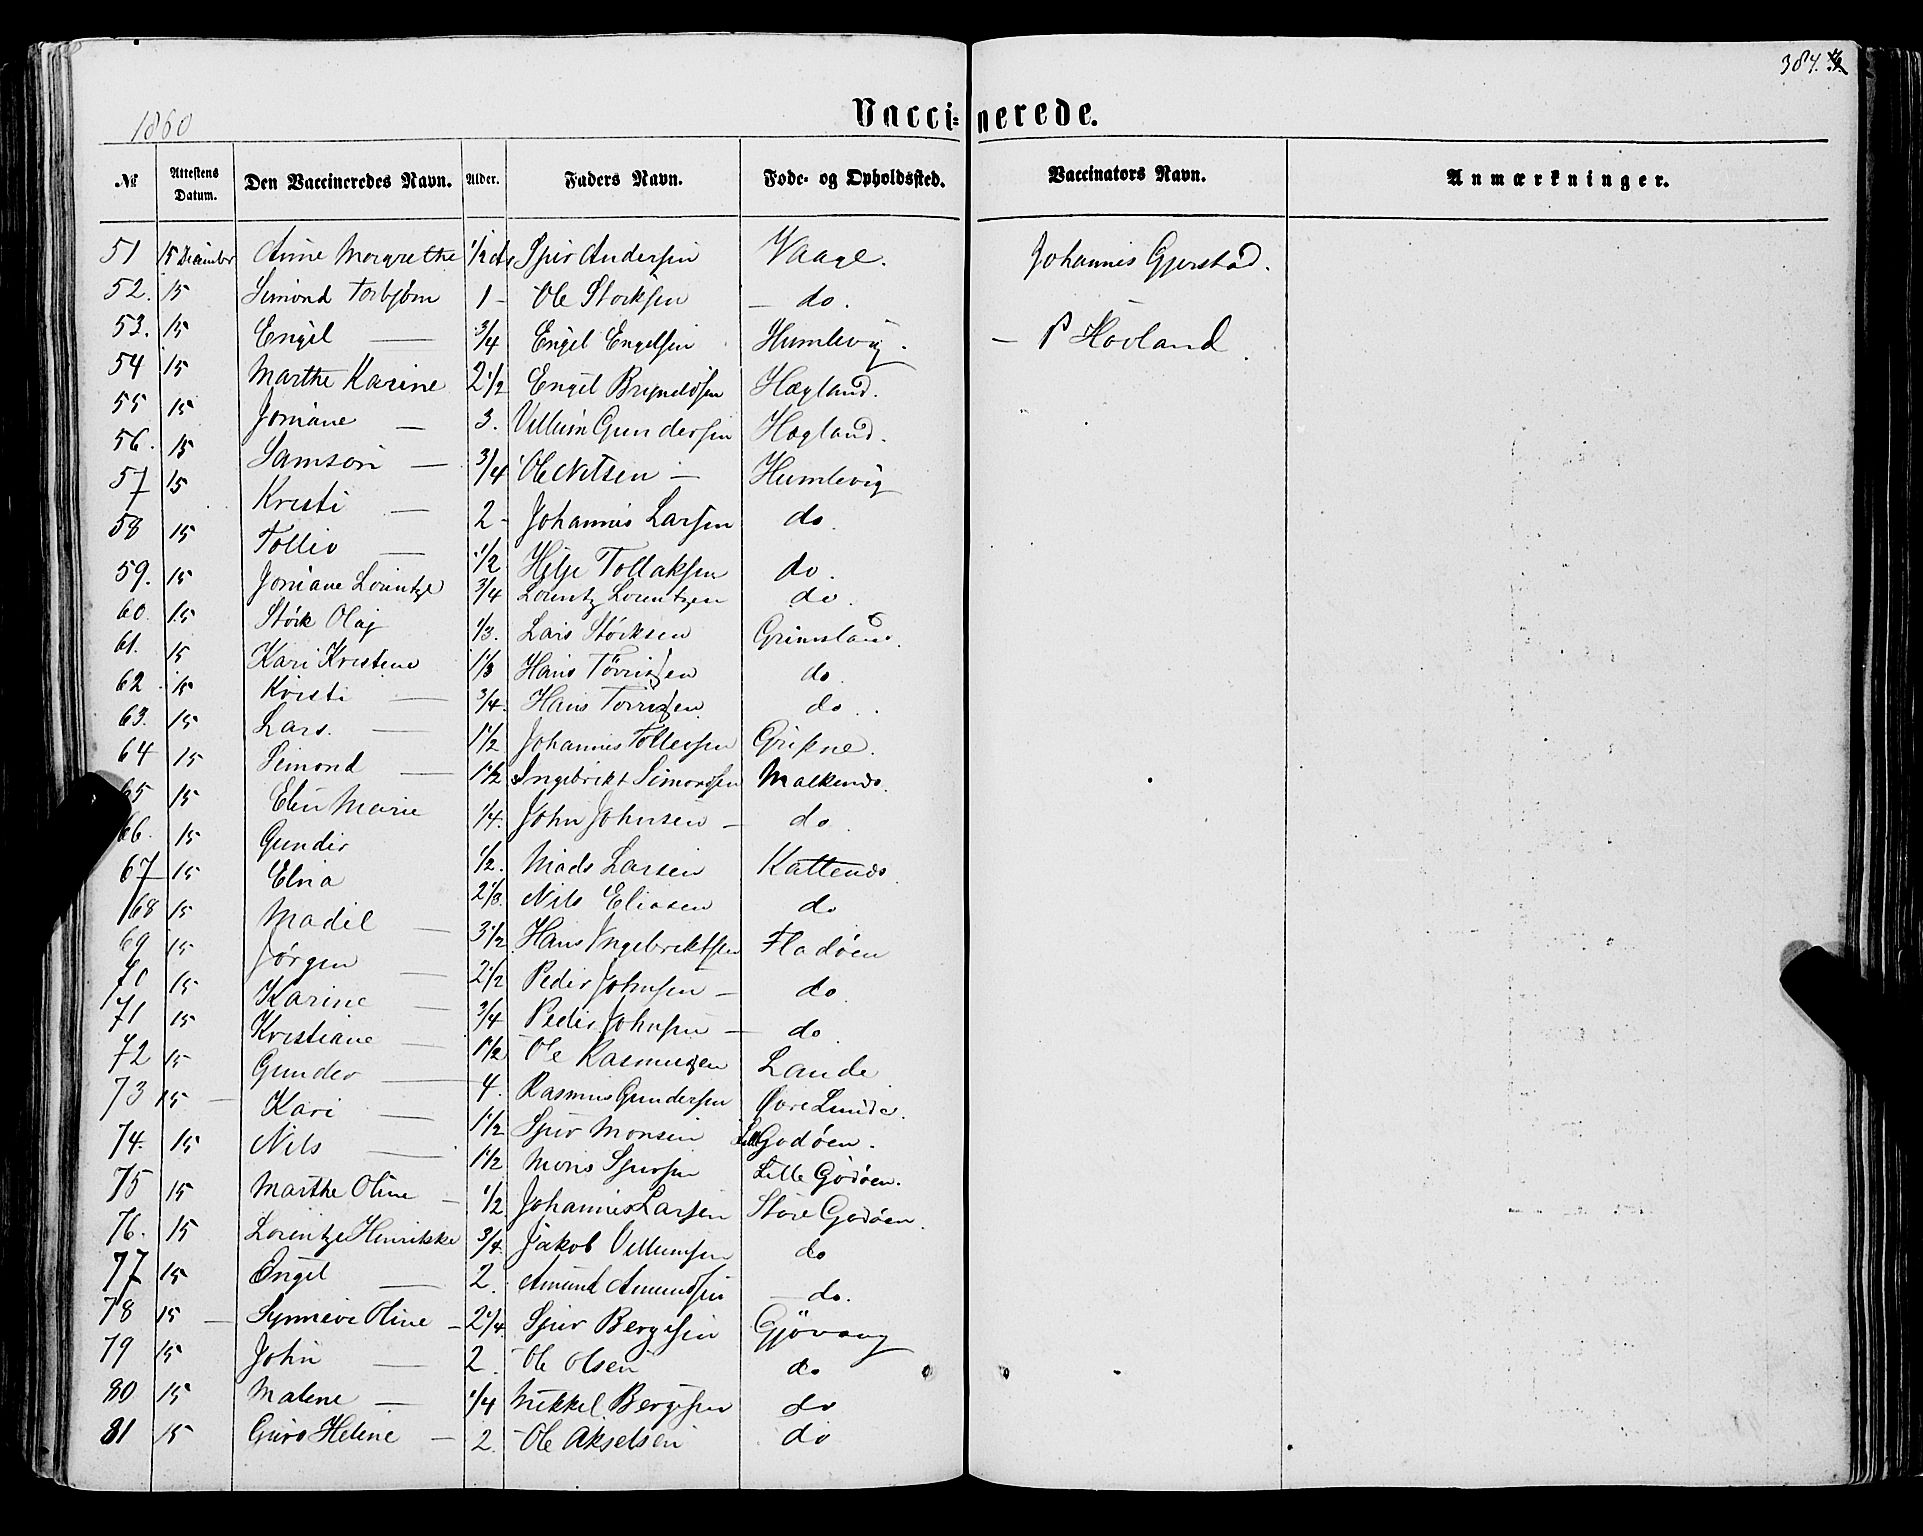 384.
1860
Vaccinerede.
№ Attestens Datum. Den Vaccineredes Navn. Alder. Faders Navn. Føde- og Opholdssted. Vaccinators Navn. Anmærkninger.
51 15 December Anne Margrethe 1/2 Sjur Andersen Vaage. Johannes Gjerstad.
52. 15 Simond Torbjørn 1 - Ole Størksen — do.
53. 15 Engel — 3/4 Engel Engelsen Humlevig. — P Hovland
54 15 Marthe Karine 2 1/2 Engel Brynildsen Hægland.
55 15 Joniane — 3. Villum Gundersen Hægland.
56. 15 Samson — 3/4 Ole Nilsen — Humlevig
57 15 Kristi — 2 - Johannes Larsen do
58 15 Tolliv — 1/2 Helje Tollaksen do.
59. 15 Joniane Lorintze 3/4 Lorintz Lorintzen do.
60. 15 Størk Olaj 1/3. Lars Størksen Grimsland.
61. 15 Kari Kristine 1 1/3 Hans Tørrissen do.
62 15 Kristi — 3/4. Hans Tørrissen do.
63. 15 Lars. — 1 1/2 Johannes Tollevsen Gripne.
64 15 Simond — 1 1/2 Ingebrikt Simondsen Malkenes.
65 15 Elen Marie 1/4. John Johnsen — do.
66. 15 Gunder 1/2. Mads Larsen Kattenes
67 15 Elna 2 1/3. Nils Eliasen do
68 15 Madil — 3 1/2 Hans Ingebriktsen Fladöen
69 15 Jørgen — 2 1/2 Peder Johnsen — do
70 15 Karine — 3/4 Peder Johnsen — do
71 15 Kristiane — 1 1/2 Ole Rasmussen Lande
72 15 Gunder — 4. Rasmus Gundersen Øvre Lunde.
73 15 — Kari — 1 1/2 Sjur Monsen Lille Godöen.
74. 15 Nils — 1 1/2 Mons Sjursen Lille Godöen.
75 15 Marthe Oline — 1/2 Johannes Larsen Store Godöen.
76. 15 Lorintze Henrikke 3/4. Jakob Villumsen do
77 15 Engel — 2. Amund Amundsen — do.
78 15 — Synneve Oline — 2 1/4 Sjur Bergesen Gjövaag
79 15 John — 2. Ole Olsen do
80 15 Malene — 1/4 Mikkel Bergesen do
81 15 Guro Helene — 2. Ole Akselsen do